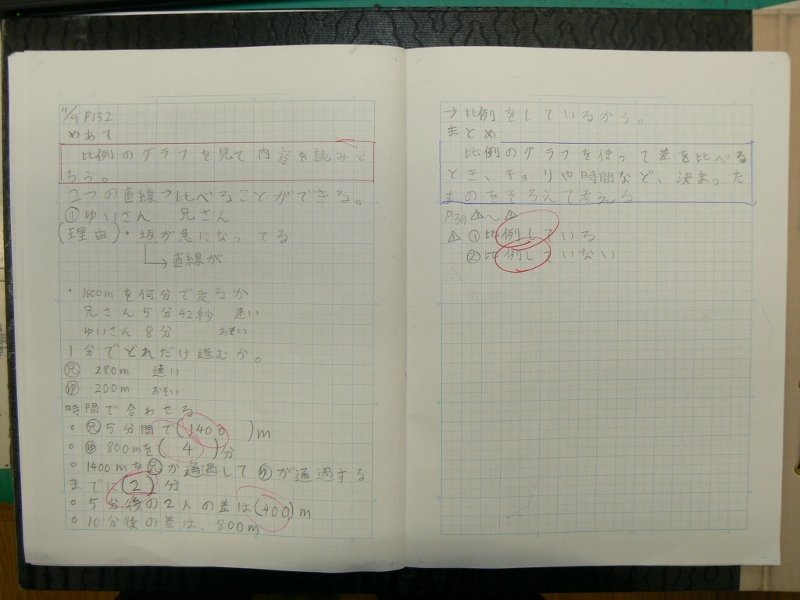 11/9 P132
めあて
比例のグラフを見て内容を読みと
ろう。
2つの直線→比べることができる。
①ゆいさん 兄さん
(理由)・坂が急になってる
直線が
・1600mを何分で走るか
兄さん5分42秒 速い
ゆいさん 8分 おそい
1分でどれだけ進むか。
兄 280m 速い
ゆ 200m おそい
時間で合わせる
○兄5分間で(1400)m
○ゆ800mを(4)分
○1400mを兄が通過してゆが通過する
までに(2)分
○5分後の2人の差は(400)m
○10分後の差は、800m
→比例をしているから。
まとめ
比例のグラフを使って差を比べる
とき、キョリや時間など、決まった
ものをそろえて考える
①比例している
②比例していない